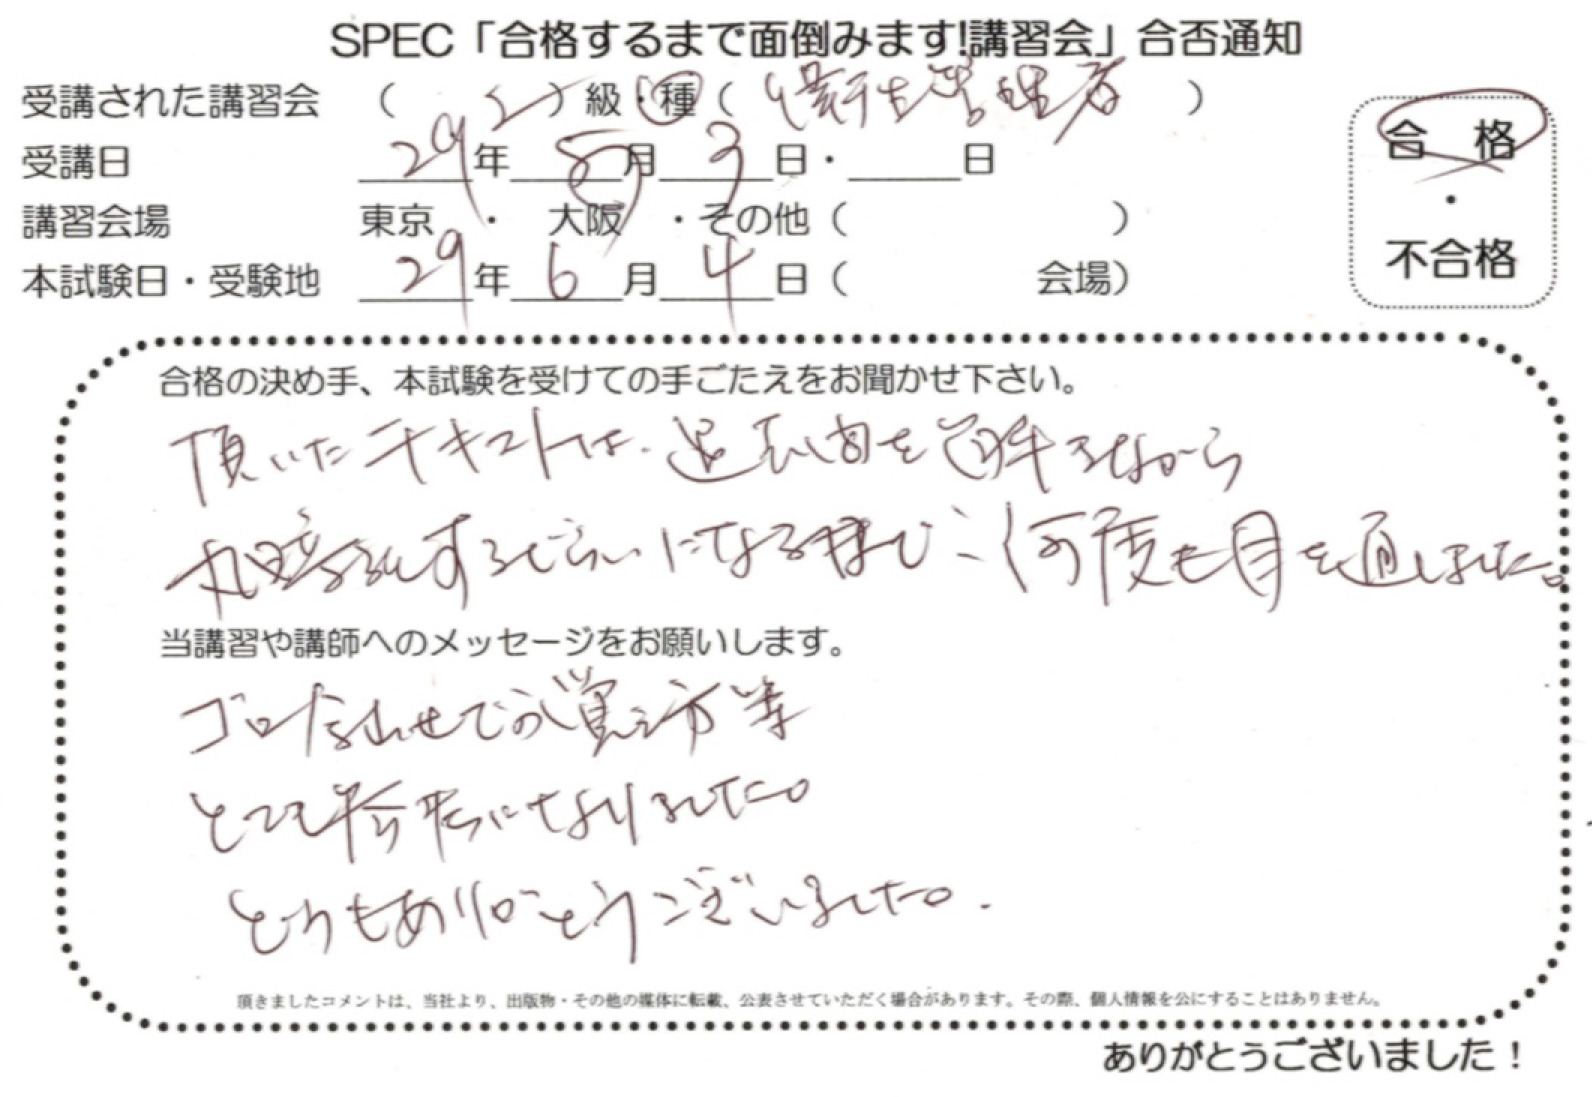 SPEC「合格するまで面倒みます!講習会」合否通知
受講された講習会 ( 2 ) 級・種 ( 衛生管理者 )
合 格
・
不合格
受講日 29年 5月 3日・ 日
講習会場 東京 ・ 大阪 ・その他 ( )
本試験日・受験地 29年 6月 4日 ( 会場)
合格の決め手、本試験を受けての手ごたえをお聞かせ下さい。
頂いたテキストは、過去問を解きながら
丸暗記するぐらいになる様に何度も目を通しました。
当講習や講師へのメッセージをお願いします。
ゴロ合わせでの覚え方等
とても参考になりました。
とてもありがとうございました。
頂きましたコメントは、当社より、出版物・その他の媒体に転載、公表させていただく場合があります。その際、個人情報を公にすることはありません。
ありがとうございました！